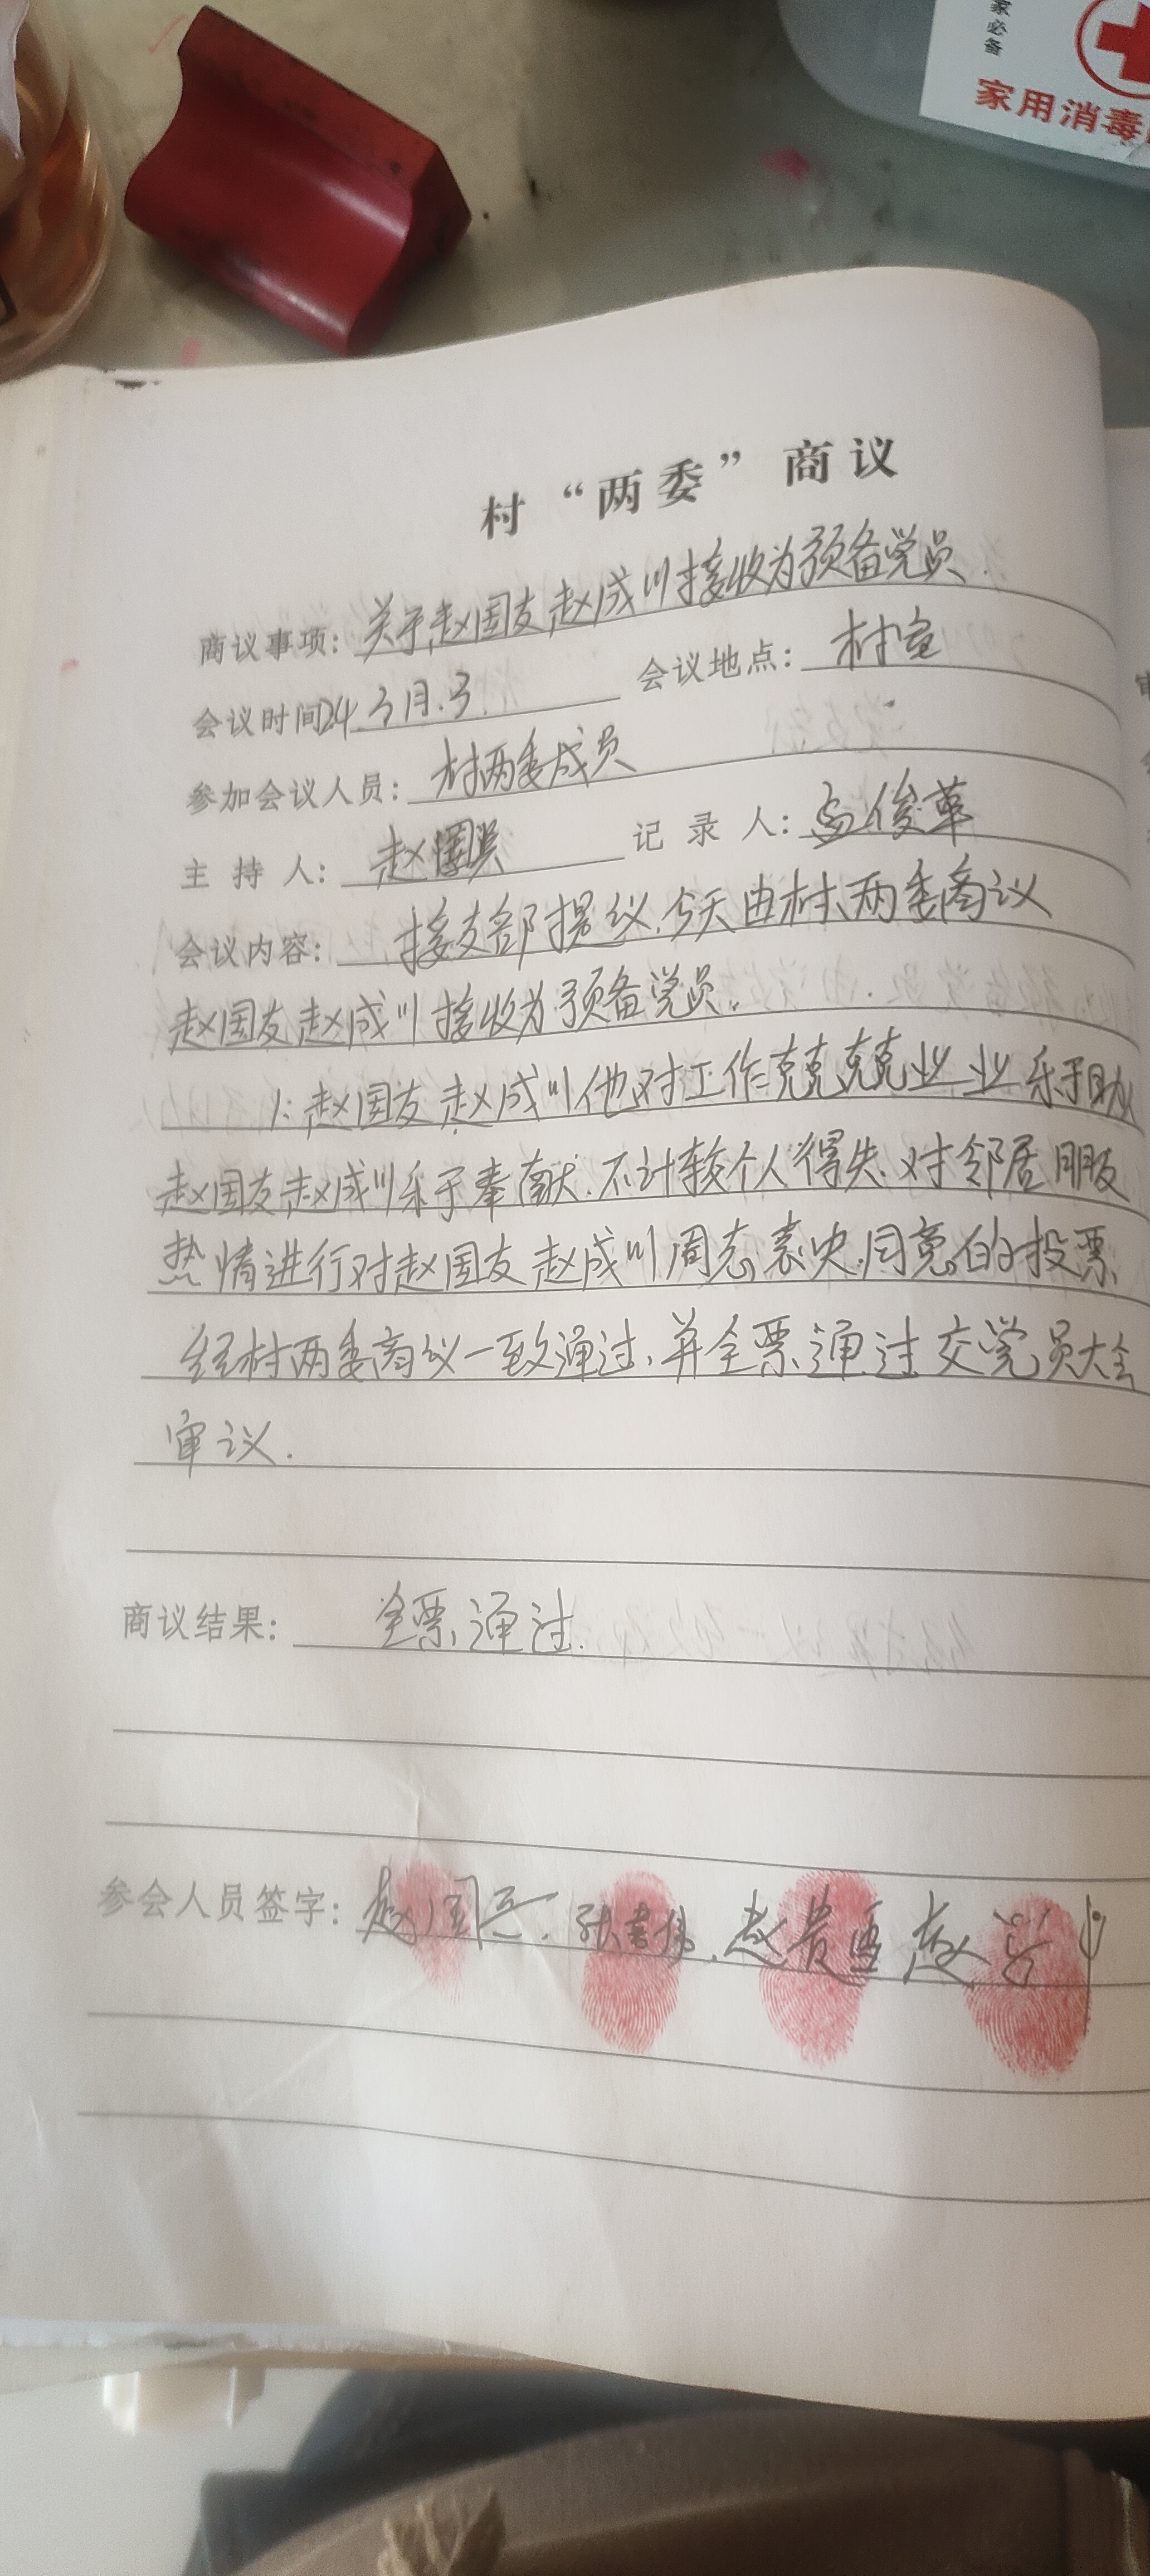 家必备
家用消毒
村“两委”商议
商议事项: 关于赵国友赵成川接收为预备党员.
会议时间24.3月.3. 会议地点: 村室
参加会议人员: 村两委成员
主持人: 赵 记录人: 孟俊革
会议内容: 接支部提议.今天由村两委商议
赵国友赵成川接收为预备党员.
1: 赵国友赵成川他对工作克克克克业业乐于助人
赵国友赵成川乐于奉献.不计较个人得失.对邻居朋友
热情进行对赵国友赵成川同志表决.同意的投票
经村两委商议一致通过,并全票通过交党员大会
审议.
商议结果: 全票通过.
参会人员签字: 赵国 . 张書伟. 赵贵 赵学